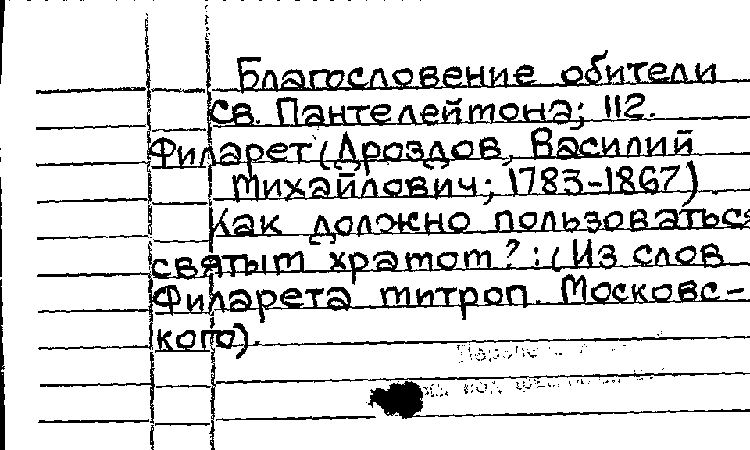 Благословение обители
св. Пантелеймона; 112.
Филарет (Дроздов, Василий
Михайлович; 1783-1867).
Как должно пользоваться
святым храмом? : (Из слов
Филарета митроп. Московс-
кого).